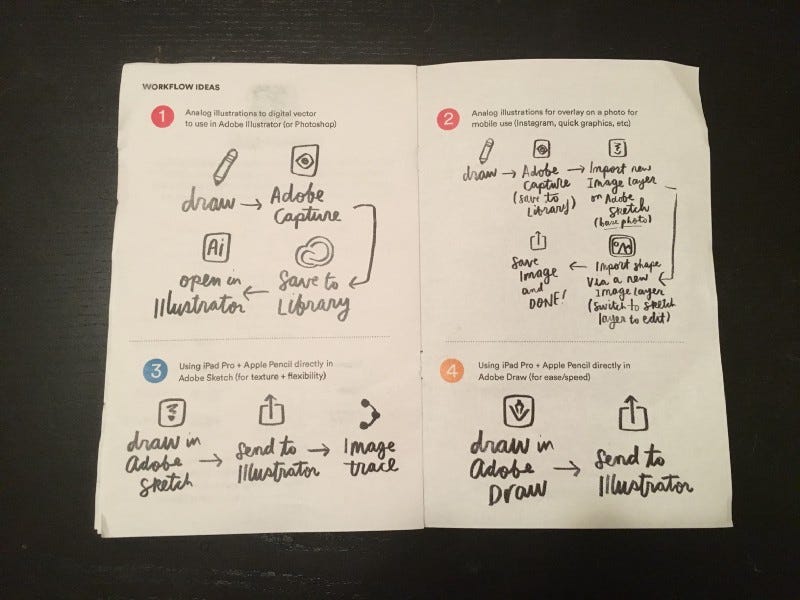 WORKFLOW IDEAS
1
Analog illustrations to digital vector
to use in Adobe Illustrator (or Photoshop)
draw →
Adobe
Capture
Ai
open in
Illustrator
←
Save to
Library
2
Analog illustrations for overlay on a photo for
mobile use (Instagram, quick graphics, etc)
draw →
Adobe
Capture
(save to
Library)
→
Import new
Image layer
on Adobe
Sketch
(base photo)
Import shape
via a new
Image layer
(switch to sketch
layer to edit)
←
Save
Image
and
DONE!
3
Using iPad Pro + Apple Pencil directly in
Adobe Sketch (for texture + flexibility)
draw in
Adobe
Sketch
→
Send to
Illustrator
→
Image
trace
4
Using iPad Pro + Apple Pencil directly in
Adobe Draw (for ease/speed)
draw in
Adobe
Draw
→
Send to
Illustrator